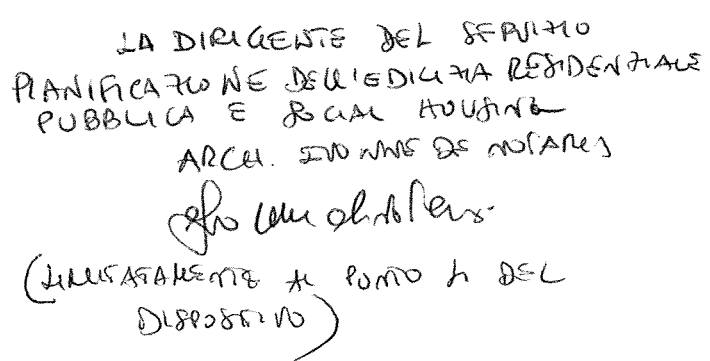 LA DIRIGENTE DEL SERVIZIO
PIANIFICAZIONE DELL'EDILIZIA RESIDENZIALE
PUBBLICA E SOCIAL HOUSING
ARCH. IVONNE DE NOTARIS
(LIMITATAMENTE AL PUNTO DEL
DISPOSITIVO)